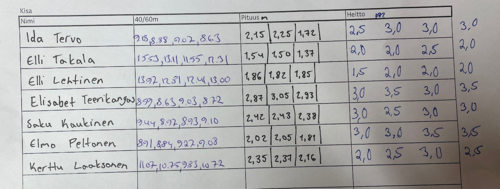 Kisa
Nimi 40/60m Pituus m Heitto
Ida Tervo 8,88, 9,02, 8,63 2,15 2,25 1,72 2,5 3,0 3,0 3,0
Elli Takala 1,54 1,50 1,37 2,0 2,0 2,5 2,0
Elli Lehtinen 13,00 1,86 1,82 1,85 1,5 2,0 2,0 2,0
Elisabet Teerikangas 8,63, 9,03, 8,72 2,87 3,05 2,93 3,0 3,5 3,0 3,5
Saku Kaukinen 9,44, 8,92, 8,93, 9,10 2,42 2,43 2,38 3,0 2,5 3,0 3,0
Elmo Peltonen 8,91, 8,84, 9,22, 9,03 2,02 2,05 1,81 3,0 3,0 3,5 3,5
Kerttu Laaksonen 11,07, 10,75, 9,83, 10,72 2,35 2,37 2,16 2,0 2,5 3,0 2,5